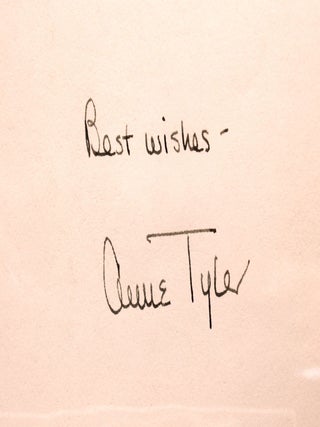 Best wishes -
Anne Tyler